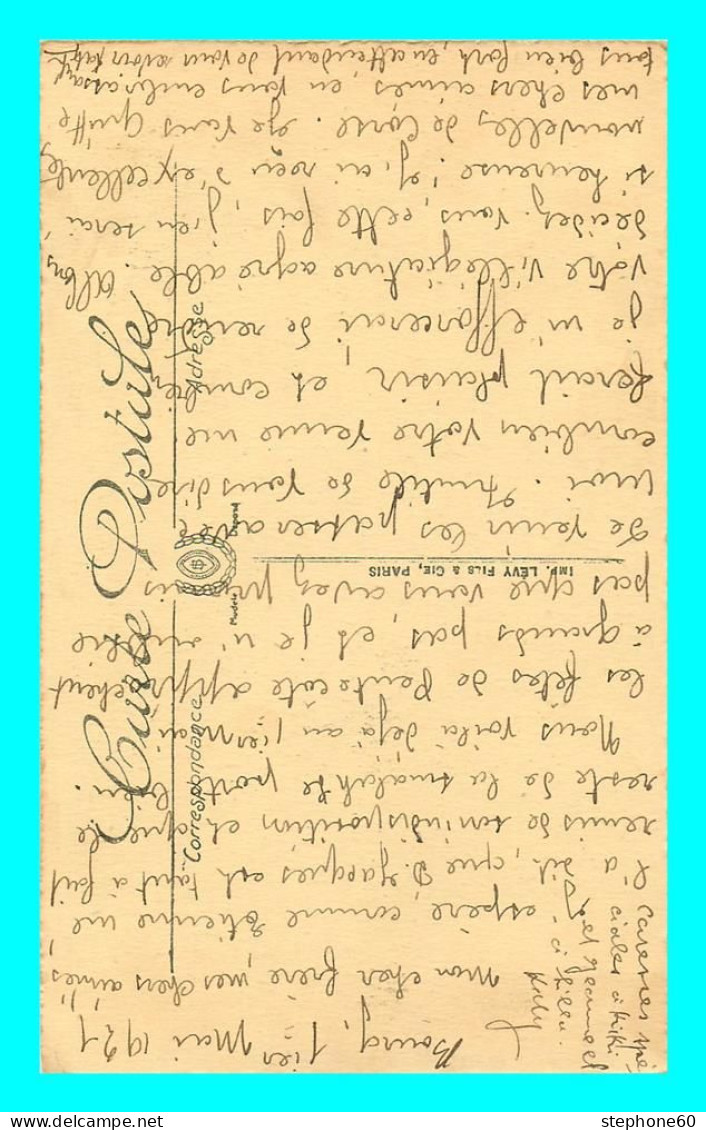 Bourg, 1er Mai 1921
Mon cher frère, mes chers aimés,
J'espère, comme Etienne me
l'a dit, que D. Jacques est tout à fait
remis de son indisposition et que le
reste de la smalah se porte bien.
Nous voilà déjà au 1er mai
les fêtes de Pentecôte approchent
à grands pas, et je n'oublie
pas que vous avez promis
de venir les passer avec
moi. Inutile de vous dire
combien votre venue me
ferait plaisir, et combien
je m'efforcerai de rendre
votre villégiature agréable. Allons
décidez-vous, cette fois, j'en serai
si heureuse! J'ai reçu d'excellentes
nouvelles de Corse. Je vous quitte
mes chers aimés en vous embrassant
tous bien fort, en attendant de vous revoir
Caresses spé-
ciales à Kiki
et Jeanne et
à Lilla.
Carte Postale
Correspondance
Adresse
Modèle Déposé
IMP. LÉVY FILS & CIE, PARIS
stephone60